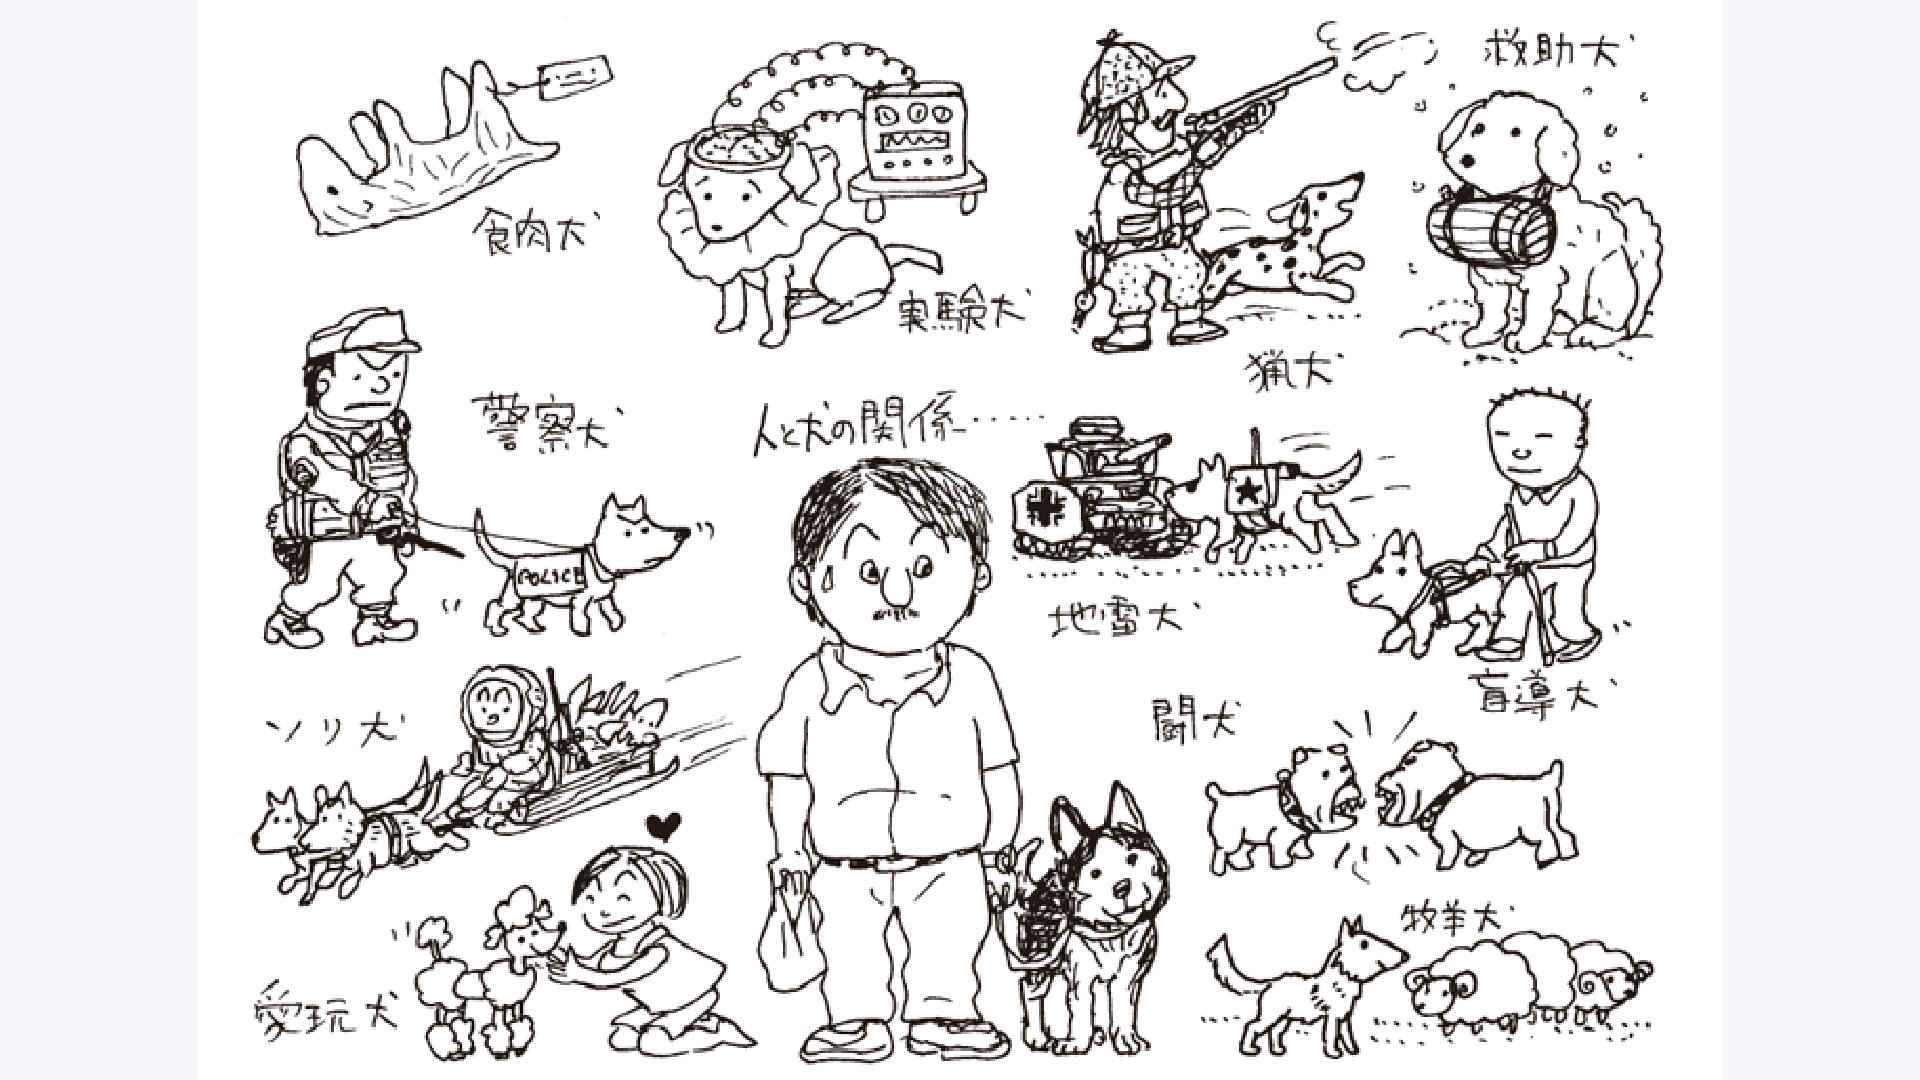 救助犬
食肉犬
実験犬
猟犬
警察犬
人と犬の関係……
POLICE
地雷犬
盲導犬
ソリ犬
闘犬
牧羊犬
愛玩犬